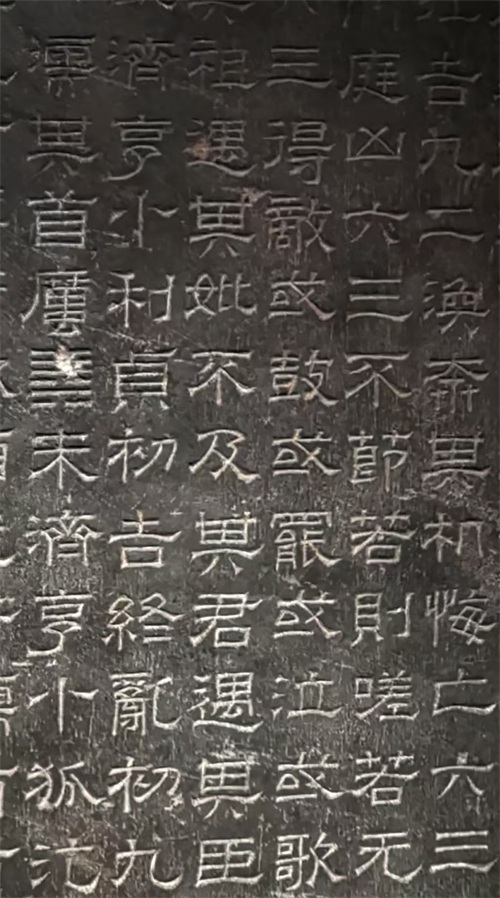 吉九二渙奔其机悔亡六三
庭凶六三不節若則嗟若无
三得敵或鼓或罷或泣或歌
祖遇其妣不及其君遇其臣
濟亨小利貞初吉終亂初九
濡其首厲䷿未濟亨小狐汔